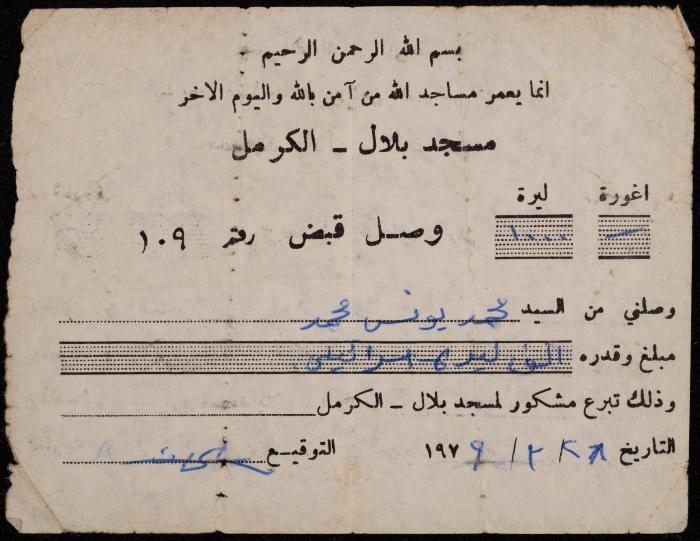 بسم الله الرحمن الرحيم
انما يعمر مساجد الله من آمن بالله واليوم الاخر
مسجد بلال ـ الكرمل
اغورة ليرة
— ١٠٠٠
وصل قبض رقم ١٠٩
وصلني من السيد محمد يونس محمد
مبلغ وقدره ليرة اسرائيلي
وذلك تبرع مشكور لمسجد بلال ـ الكرمل
التاريخ ٢٨ / ٢ / ١٩٧٩ التوقيع